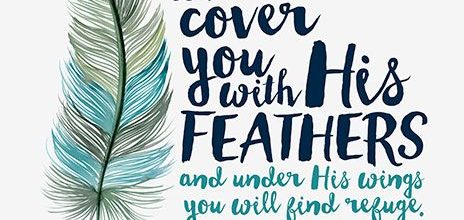 cover
you
with His
FEATHERS
and under His wings
you will find refuge.